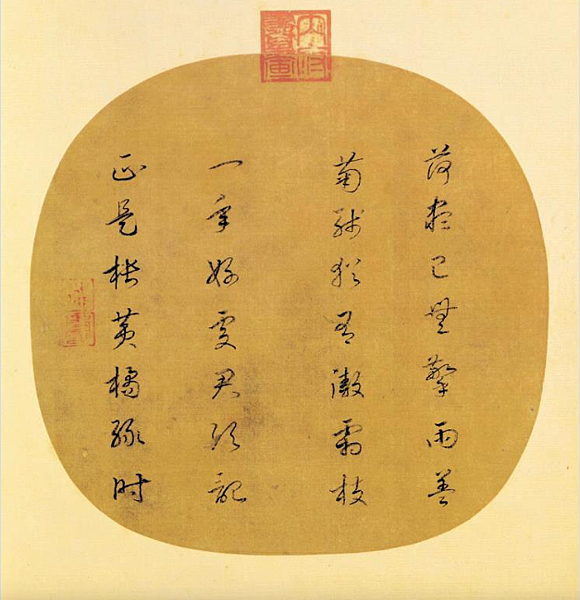 荷盡已無擎雨蓋
菊殘猶有傲霜枝
一年好處君須記
正是棖黃橘綠時